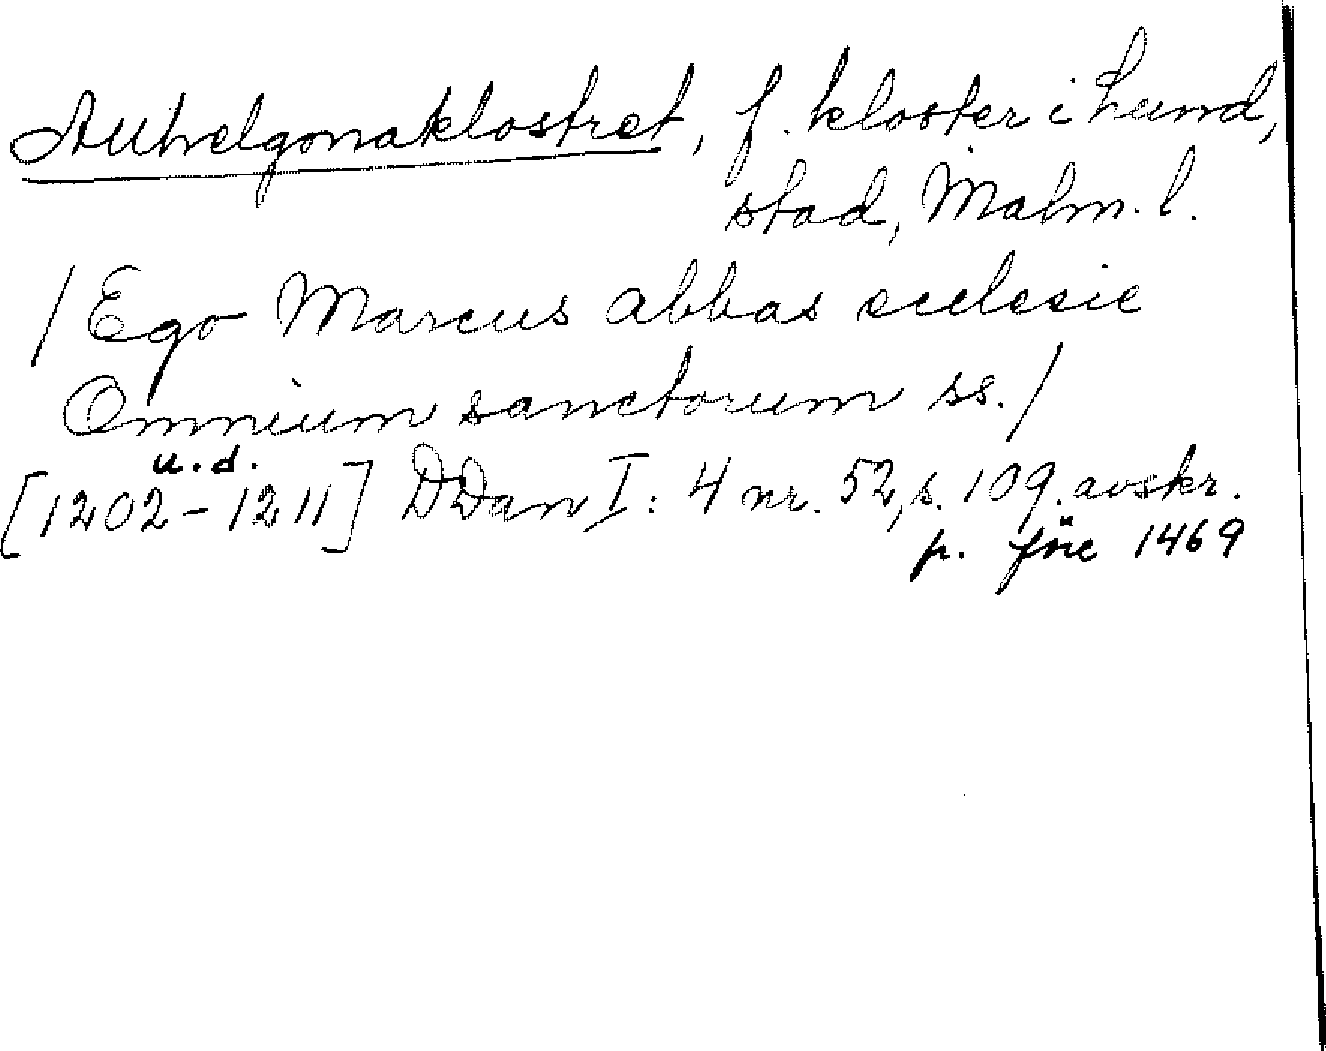 Allhelgonaklostret, f. kloster i Lund,
stad, Malm. l.
/Ego Marcus abbas ecclesie
Omnium sanctorum ss./
u.d.
[1202-1211] DDan I: 4 nr. 52, s. 109. avskr.
p. före 1469